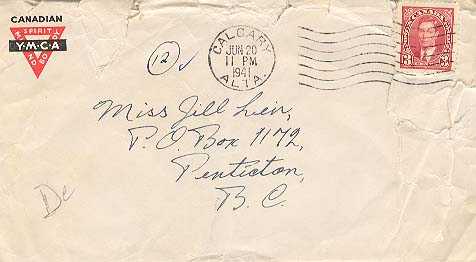 CANADIAN
SPIRIT
Y·M·C·A
MIND
BODY
12
CALGARY
JUN 20
11 PM
1941
ALTA.
CANADA
3 3
Miss Jill
P.O. Box 1172,
Penticton,
B.C.
De